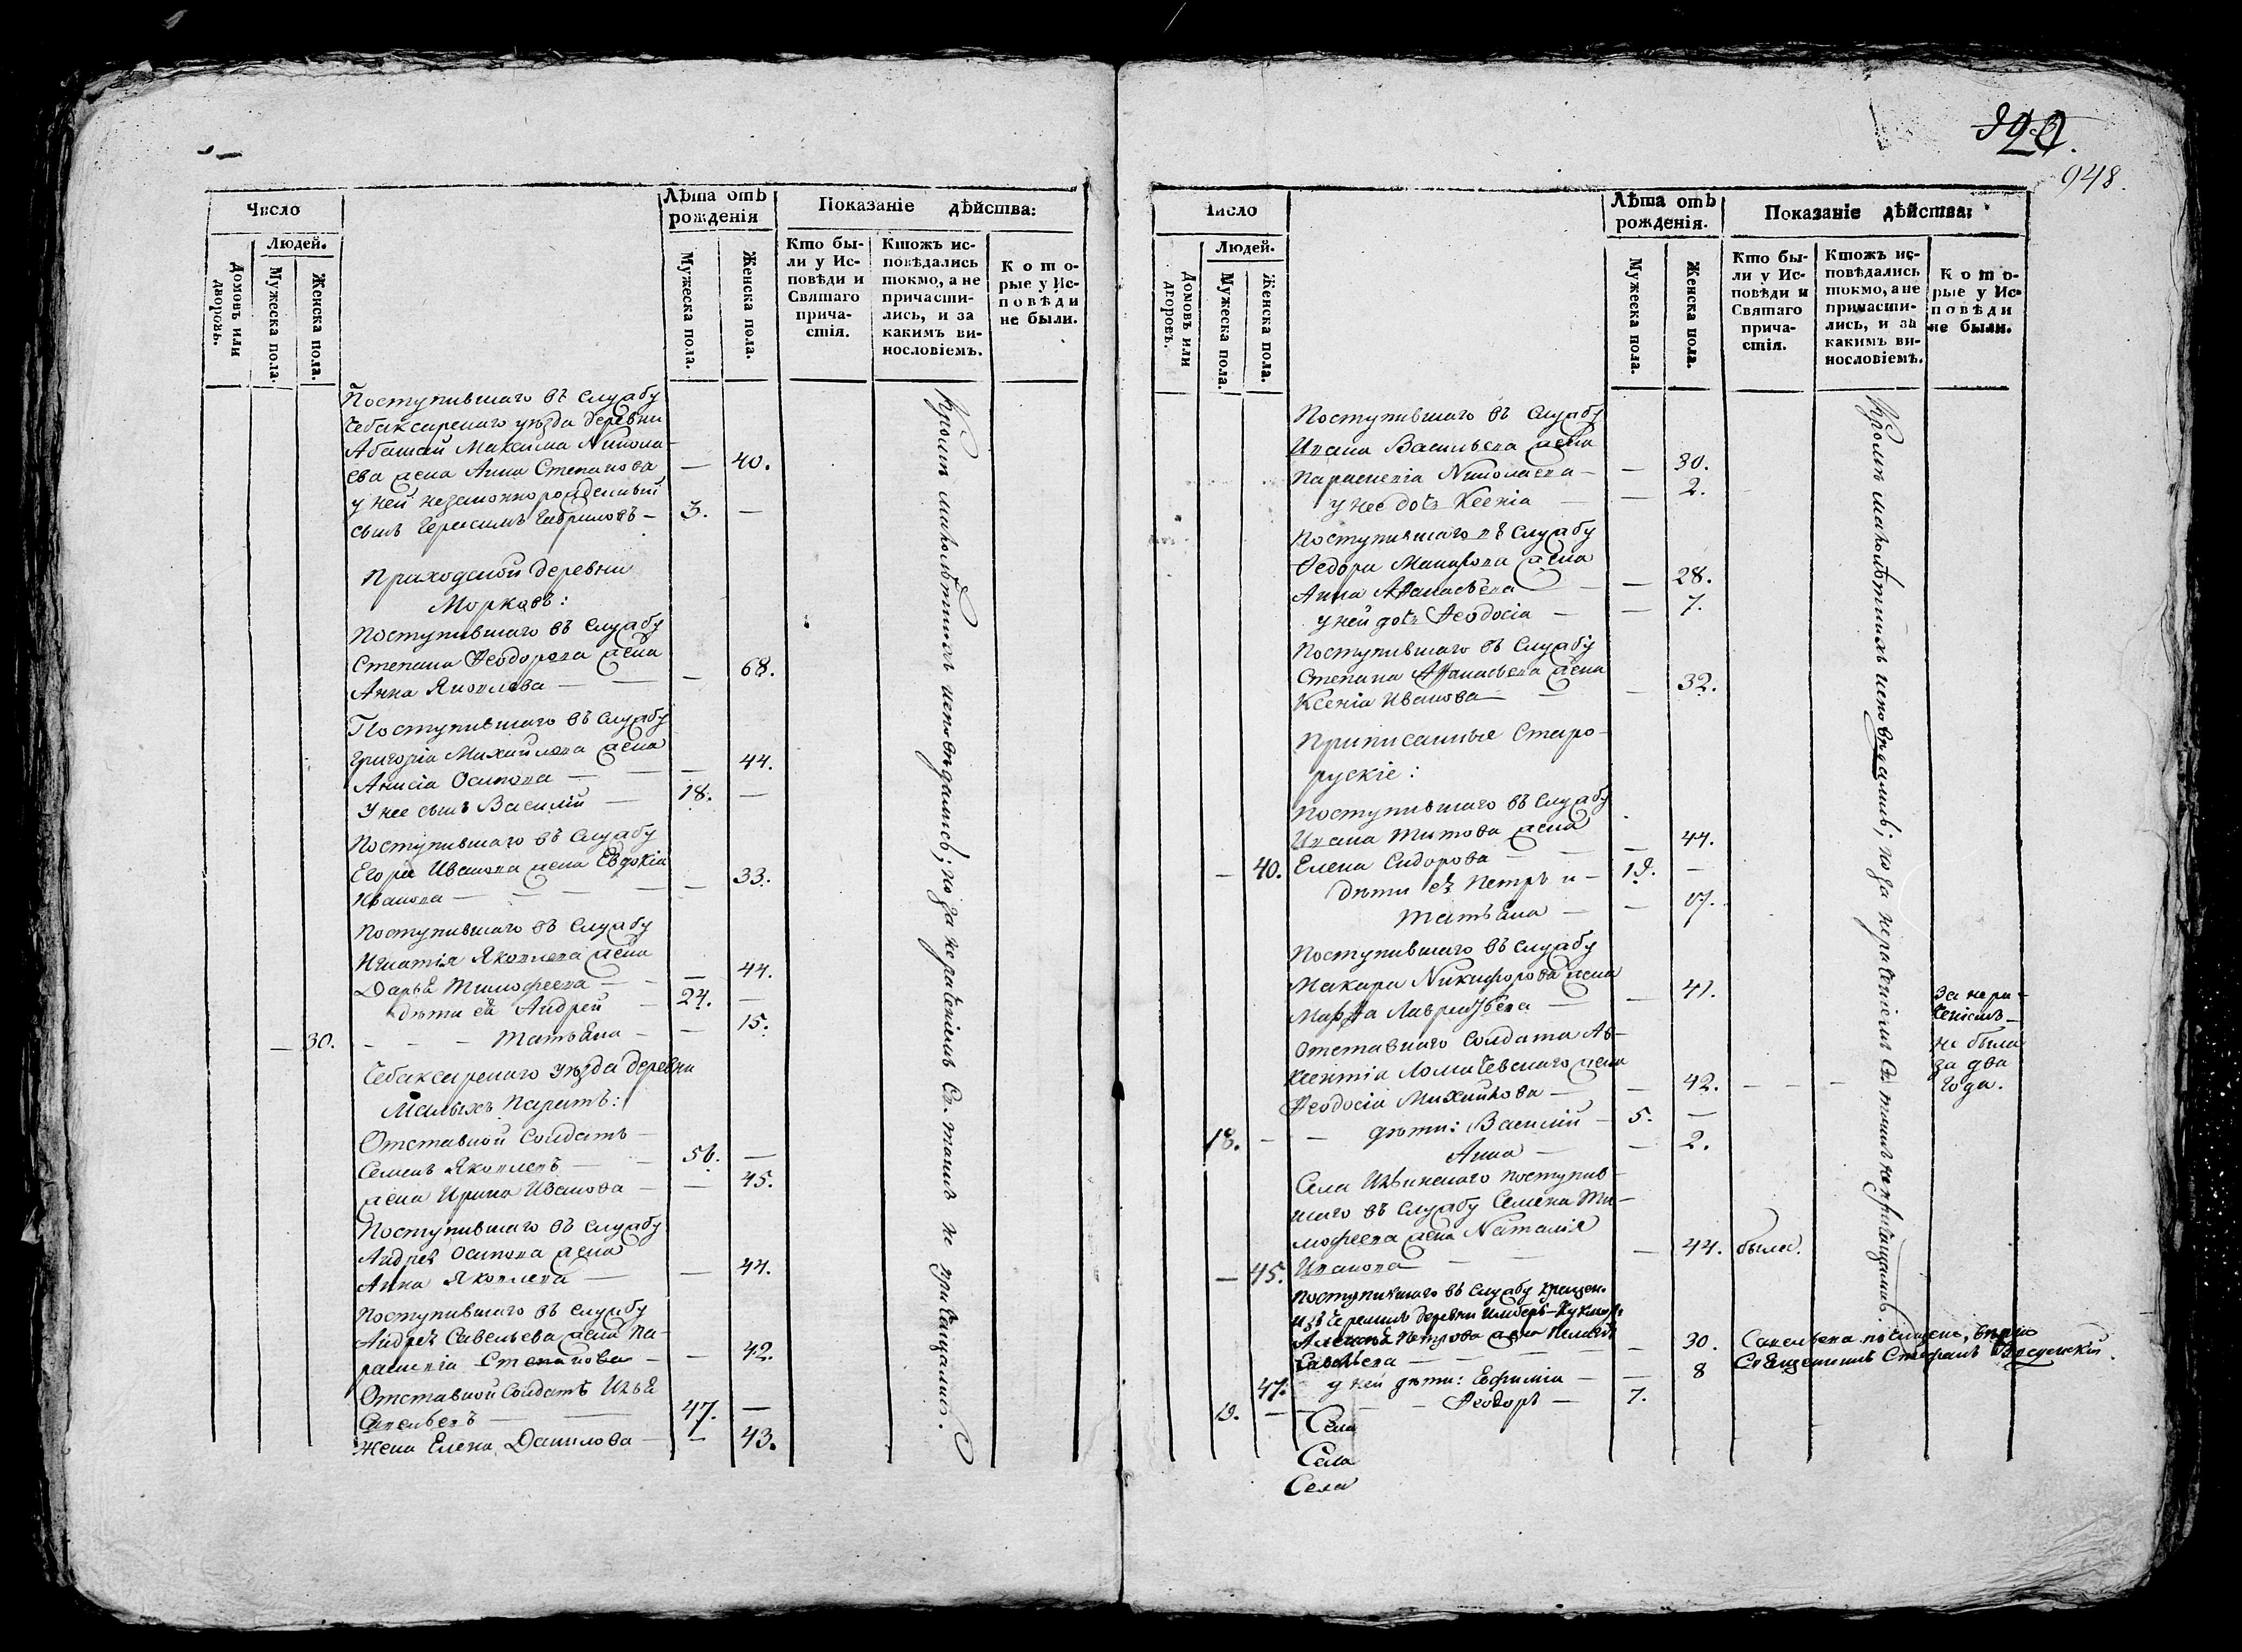 Число
Людей.
Домовъ или дворовъ.
Мужеска пола.
Женска пола.
Лѣта отъ рожденія
Мужеска пола.
Женска пола.
Показаніе дѣйства:
Кто бы-
ли у Ис-
повѣди и
Святаго
прича-
стія.
Ктожъ ис-
повѣдались
токмо, а не
причасти-
лись, и за
какимъ ви-
нословіемъ.
Кото-
рые у Ис-
повѣди
не были.
Поступившаго въ службу
Чебаксарскаго уѣзда деревни
Абашай Максима Никола-
ева жена Анна Степанова — 40.
у ней незаконнорожденный
сынъ Герасимъ Гавриловъ — 3. —
Приходской деревни
Морковъ:
Поступившаго въ службу
Степана Ѳеодорова жена
Анна Яковлева — — 68.
Поступившаго въ службу
Григорія Михайлова жена
Анисія Осипова — — 44.
У нее сынъ Василій — 18. —
Поступившаго въ службу
Егора Иванова жена Евдокія
Иванова — — 33.
Поступившаго въ службу
Игнатія Яковлева жена
Дарья Тимоѳеева — — 44.
дѣти ея Андрей 24. —
— 30. — — — Татьяна — — 15.
Чебаксарскаго уѣзда деревни
Малыхъ Паратъ:
Отставной Солдатъ
Семенъ Яковлевъ — 56. —
жена Ирина Иванова — — 45.
Поступившаго въ службу
Андрея Осипова жена
Анна Яковлева — — 44.
Поступившаго въ службу
Андрея Савельева жена Па-
раскевія Степанова — — 42.
Отставной Солдатъ Илья
Савельевъ — 47. —
Жена Елена Данилова — — 43.
Кромѣ малолѣтнихъ исповѣдались; но за нераченіемъ Св. таинъ не причащались.
920.
948.
Число
Людей.
Домовъ или дворовъ.
Мужеска пола.
Женска пола.
Лѣта отъ рожденія.
Мужеска пола.
Женска пола.
Показаніе дѣйства:
Кто бы-
ли у Ис-
повѣди и
Святаго
прича-
стія.
Ктожъ ис-
повѣдались
токмо, а не
причасти-
лись, и за
какимъ ви-
нословіемъ.
Кото-
рые у Ис-
повѣди
не были.
Поступившаго въ службу
Ивана Васильева жена
Параскевія Николаева — — 30.
у нее дочь Ксенія — 2.
Поступившаго въ службу
Ѳедора жена
Анна Аѳанасьева — 28.
у ней дочь Ѳеодосія — — 7.
Поступившаго въ службу
Степана Аѳанасьева жена
Ксенія Иванова — — 32.
Приписанные Старо-
рускіе:
Поступившаго въ службу
Ивана Титова жена
— 40. Елена Сидорова — — 44.
дѣти ея Петръ и — 19. —
Татьяна — —
Поступившаго въ службу
Макара Никифорова жена
Марѳа Лаврентьева — — 41.
Отставнаго Солдата Ав-
ксентія жена
Ѳеодосія Михайлова — — 42. — — —
За нера-
ченіемъ
не была
за два
года.
18. — — дѣти: Василій — 5. —
Анна — — 2.
Села Ильинскаго поступив-
шаго въ службу Семена Ти-
моѳеева жена Наталія
— 45. Иванова — — 44. была.
Поступившаго въ службу крещен.
изъ Черемисъ деревни
Алексѣя Петрова жена
Савельева — — 30.
47. у ней дѣти: Евфимія — — 8
19. — — — Ѳеодоръ — 7.
Савельева вѣрно
Священникъ Стефанъ
Села
Села
Села
Кромѣ малолѣтнихъ исповѣдались; но за нераченіемъ Св. таинъ не причащались.